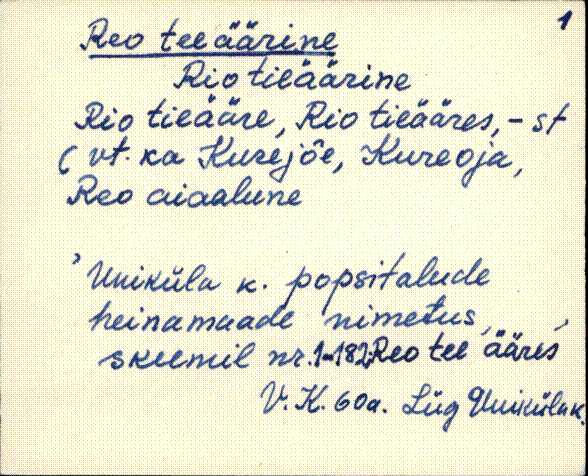 1
Reo teeäärine
Rio tieäärine
Rio tieääre, Rio tieääres, -st
( vt. ka Kurejõe, Kureoja,
Reo aiaalune
' Uniküla k. popsitalude
heinamaade nimetus,
skeemil nr. 1-182; Reo tee ääres'
V. K. 60a. Lüg Uniküla k.